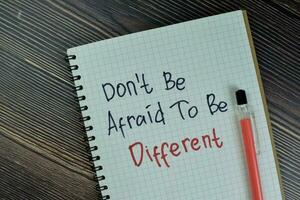 Don't Be
Afraid To Be
Different